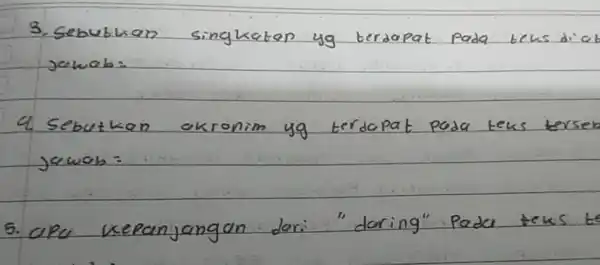 3. Sebutkan singkatan yg terdapat pada teks diat
Jawab =
4. Sebutkan akronim yg terdapat pada teks terseb
Jawab =
5. apa kepanjangan dari "daring" Pada teks te